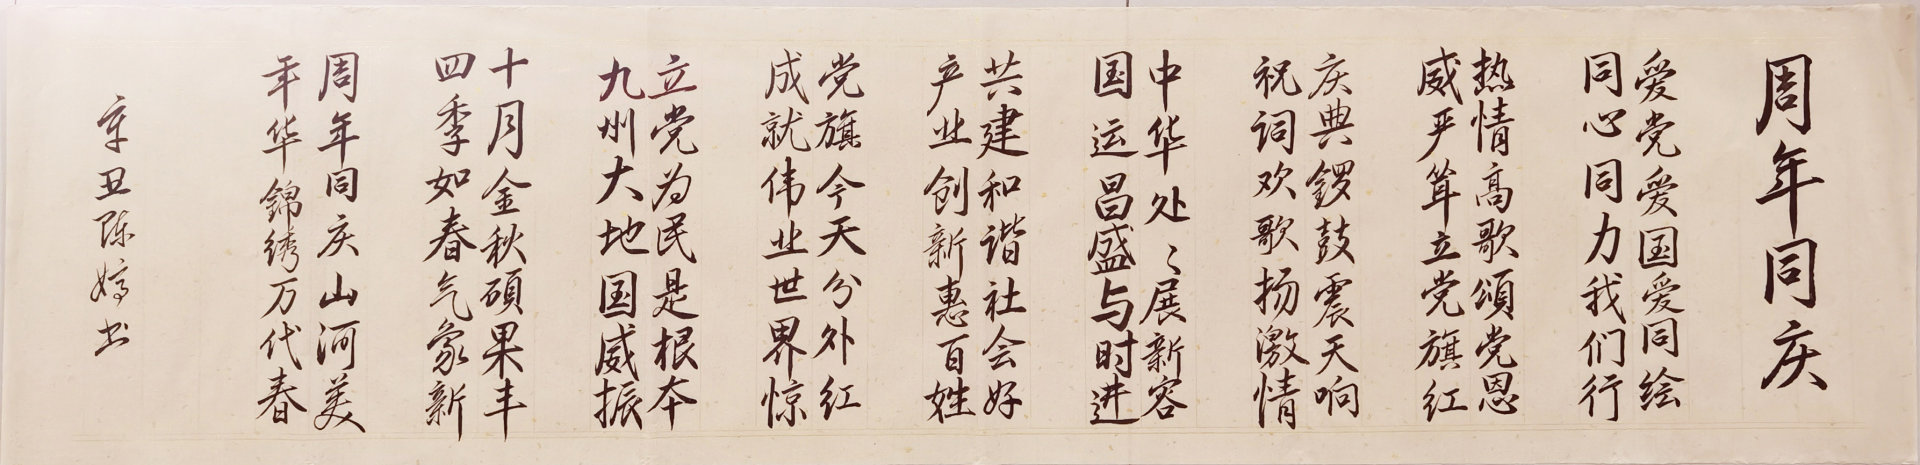 周年同庆
爱党爱国爱同绘
同心同力我们行
热情高歌颂党恩
威严耸立党旗红
庆典锣鼓震天响
祝词欢歌扬激情
中华处〻展新容
国运昌盛与时进
共建和谐社会好
产业创新惠百姓
党旗今天分外红
成就伟业世界惊
立党为民是根本
九州大地国威振
十月金秋硕果丰
四季如春气象新
周年同庆山河美
年华錦绣万代春
辛丑陈婷书